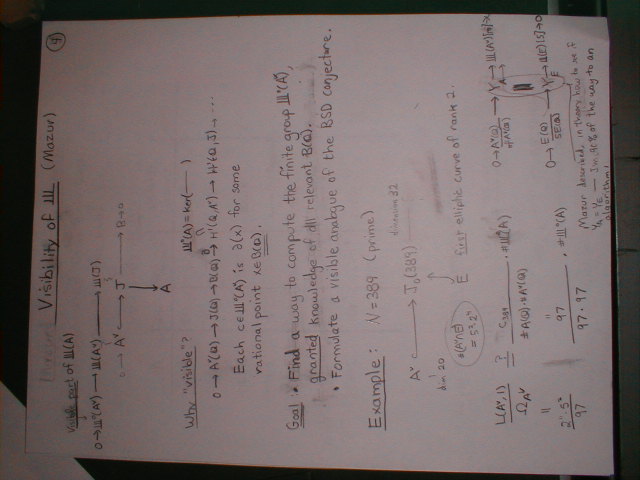 ④
Visibility of Ш (Mazur)
Visible part of Ш(A)
0→Ш°(Aᵛ)→Ш(Aᵛ)→Ш(J)
0→Aᵛ→J→B→0
A
Why "visible"?
Ш°(A)=ker( — )
0→Aᵛ(Q)→J(Q)→B(Q)→H¹(Q,Aᵛ)→H¹(Q,J)→...
Each c∈Ш°(Aᵛ) is ∂(x) for some
rational point x∈B(Q).
Goal: • Find a way to compute the finite group Ш°(Aᵛ),
granted knowledge of all relevant B(Q).
• Formulate a visible analogue of the BSD conjecture.
Example: N=389 (prime)
Aᵛ ⟶ J₀(389)
dim 20
dimension 32
#(Aᵛ∩E) = 5²·2ⁿ
E first elliptic curve of rank 2.
L(Aᵛ,1)/Ω_Aᵛ ≟ C₃₈₉/(#A(Q)·#Aᵛ(Q)) · #Ш(A)
2ⁿ·5²/97 = 97/(97·97) · #Ш°(A)
0→Aᵛ(Q)/5Aᵛ(Q)→Y_A→Ш(Aᵛ)[5]→0
0→E(Q)/5E(Q)→Y_E→Ш(E)[5]→0
Mazur described, in theory how to see if
Y_A = Y_E — I'm 90% of the way to an
algorithm!